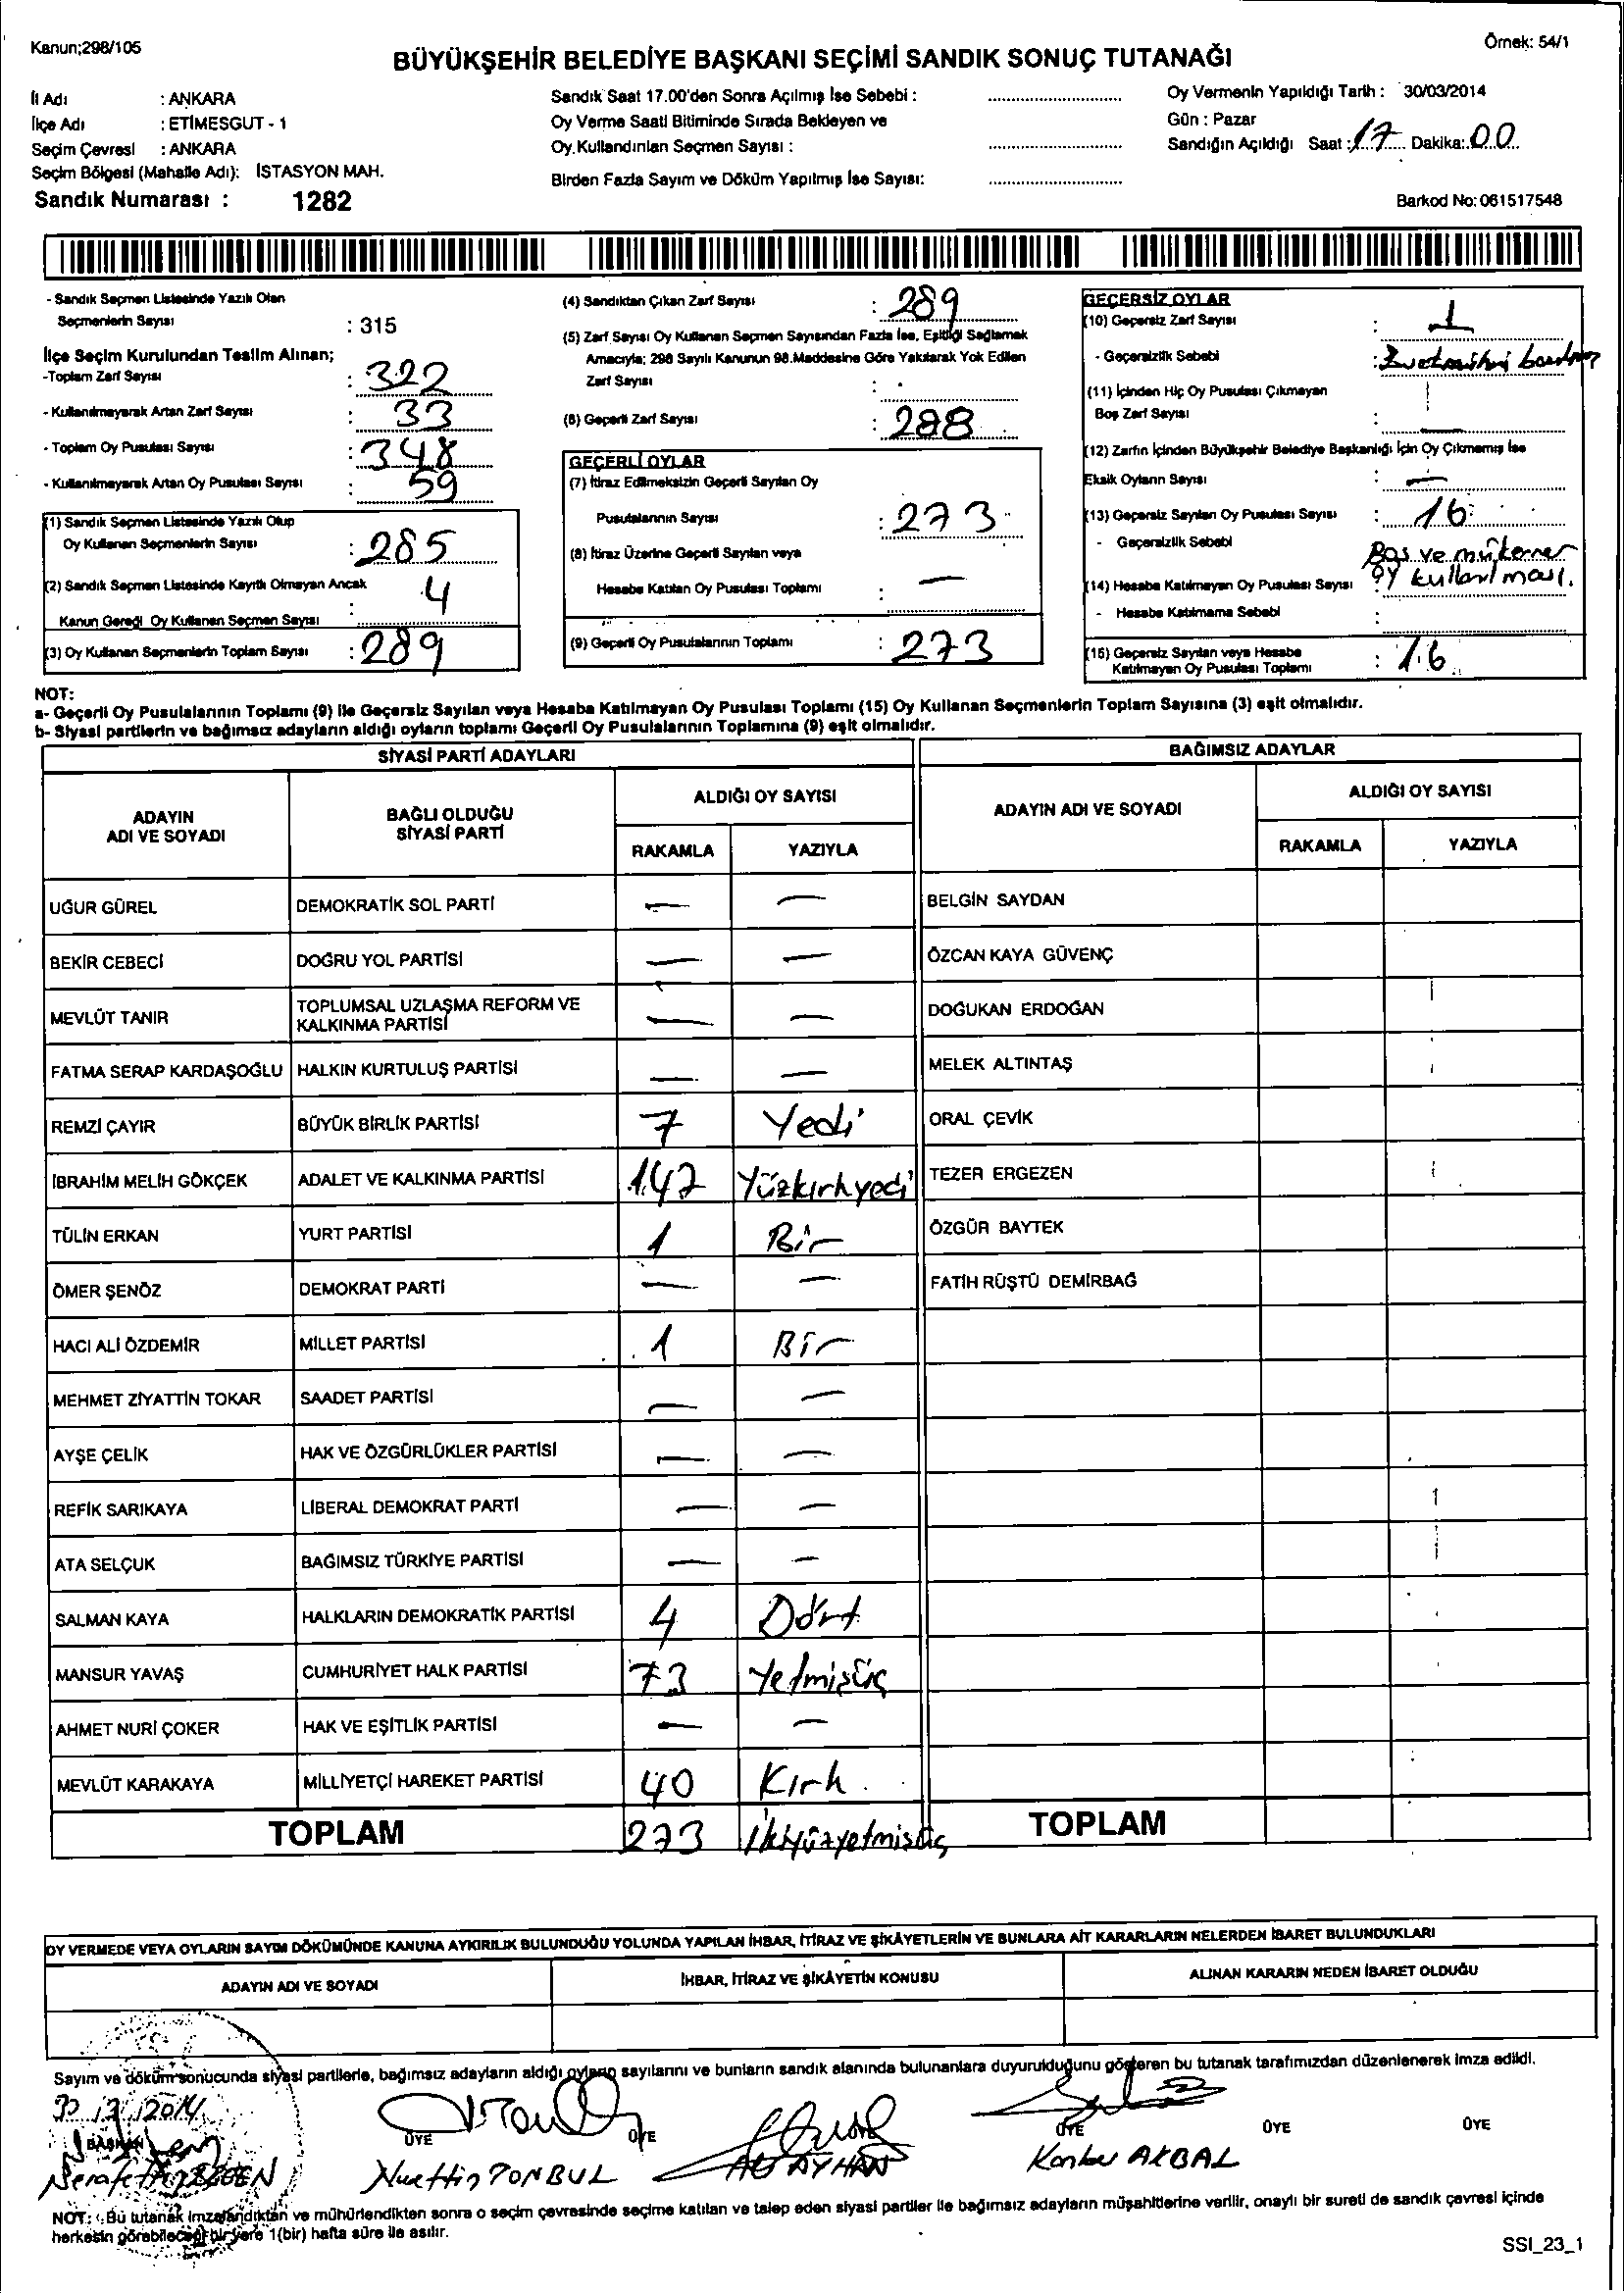 Kanun;298/105
Örnek: 54/1
BÜYÜKŞEHİR BELEDİYE BAŞKANI SEÇİMİ SANDIK SONUÇ TUTANAĞI
İl Adı : ANKARA
İlçe Adı : ETİMESGUT - 1
Seçim Çevresi : ANKARA
Seçim Bölgesi (Mahalle Adı): İSTASYON MAH.
Sandık Numarası : 1282
Sandık Saat 17.00'den Sonra Açılmış İse Sebebi :
Oy Verme Saati Bitiminde Sırada Bekleyen ve
Oy Kullandırılan Seçmen Sayısı :
Birden Fazla Sayım ve Döküm Yapılmış İse Sayısı:
Oy Vermenin Yapıldığı Tarih : 30/03/2014
Gün : Pazar
Sandığın Açıldığı Saat : 17 Dakika: 00
Barkod No: 061517548
- Sandık Seçmen Listesinde Yazılı Olan
Seçmenlerin Sayısı : 315
İlçe Seçim Kurulundan Teslim Alınan;
-Toplam Zarf Sayısı : 322
- Kullanılmayarak Artan Zarf Sayısı : 33
- Toplam Oy Pusulası Sayısı : 348
- Kullanılmayarak Artan Oy Pusulası Sayısı : 59
(1) Sandık Seçmen Listesinde Yazılı Olup
Oy Kullanan Seçmenlerin Sayısı : 285
(2) Sandık Seçmen Listesinde Kayıtlı Olmayan Ancak
Kanun Gereği Oy Kullanan Seçmen Sayısı : 4
(3) Oy Kullanan Seçmenlerin Toplam Sayısı : 289
(4) Sandıktan Çıkan Zarf Sayısı : 289
(5) Zarf Sayısı Oy Kullanan Seçmen Sayısından Fazla İse, Eşitliği Sağlamak
Amacıyla; 298 Sayılı Kanunun 98.Maddesine Göre Yakılarak Yok Edilen
Zarf Sayısı :
(6) Geçerli Zarf Sayısı : 288
GEÇERLİ OYLAR
(7) İtiraz Edilmeksizin Geçerli Sayılan Oy
Pusulalarının Sayısı : 273
(8) İtiraz Üzerine Geçerli Sayılan veya
Hesaba Katılan Oy Pusulası Toplamı : —
(9) Geçerli Oy Pusulalarının Toplamı : 273
GEÇERSİZ OYLAR
(10) Geçersiz Zarf Sayısı : 1
- Geçersizlik Sebebi :
(11) İçinden Hiç Oy Pusulası Çıkmayan
Boş Zarf Sayısı : —
(12) Zarfın İçinden Büyükşehir Belediye Başkanlığı İçin Oy Çıkmamış İse
Eksik Oyların Sayısı : —
(13) Geçersiz Sayılan Oy Pusulası Sayısı : 16
- Geçersizlik Sebebi Boş ve mükerrer
oy kullanılması.
(14) Hesaba Katılmayan Oy Pusulası Sayısı :
- Hesaba Katılmama Sebebi :
(15) Geçersiz Sayılan veya Hesaba
Katılmayan Oy Pusulası Toplamı : 16
NOT:
a- Geçerli Oy Pusulalarının Toplamı (9) ile Geçersiz Sayılan veya Hesaba Katılmayan Oy Pusulası Toplamı (15) Oy Kullanan Seçmenlerin Toplam Sayısına (3) eşit olmalıdır.
b- Siyasi partilerin ve bağımsız adayların aldığı oyların toplamı Geçerli Oy Pusulalarının Toplamına (9) eşit olmalıdır.
SİYASİ PARTİ ADAYLARI
BAĞIMSIZ ADAYLAR
ADAYIN
ADI VE SOYADI
BAĞLI OLDUĞU
SİYASİ PARTİ
ALDIĞI OY SAYISI
RAKAMLA YAZIYLA
ADAYIN ADI VE SOYADI
ALDIĞI OY SAYISI
RAKAMLA YAZIYLA
UĞUR GÜREL DEMOKRATİK SOL PARTİ — — BELGİN SAYDAN
BEKİR CEBECİ DOĞRU YOL PARTİSİ — — ÖZCAN KAYA GÜVENÇ
MEVLÜT TANIR TOPLUMSAL UZLAŞMA REFORM VE
KALKINMA PARTİSİ — — DOĞUKAN ERDOĞAN
FATMA SERAP KARDAŞOĞLU HALKIN KURTULUŞ PARTİSİ — — MELEK ALTINTAŞ
REMZİ ÇAYIR BÜYÜK BİRLİK PARTİSİ 7 Yedi ORAL ÇEVİK
İBRAHİM MELİH GÖKÇEK ADALET VE KALKINMA PARTİSİ 147 Yüzkırkyedi TEZER ERGEZEN
TÜLİN ERKAN YURT PARTİSİ 1 Bir ÖZGÜR BAYTEK
ÖMER ŞENÖZ DEMOKRAT PARTİ — — FATİH RÜŞTÜ DEMİRBAĞ
HACI ALİ ÖZDEMİR MİLLET PARTİSİ 1 Bir
MEHMET ZİYATTİN TOKAR SAADET PARTİSİ — —
AYŞE ÇELİK HAK VE ÖZGÜRLÜKLER PARTİSİ — —
REFİK SARIKAYA LİBERAL DEMOKRAT PARTİ — —
ATA SELÇUK BAĞIMSIZ TÜRKİYE PARTİSİ — —
SALMAN KAYA HALKLARIN DEMOKRATİK PARTİSİ 4 Dört
MANSUR YAVAŞ CUMHURİYET HALK PARTİSİ 73 Yetmişüç
AHMET NURİ ÇOKER HAK VE EŞİTLİK PARTİSİ — —
MEVLÜT KARAKAYA MİLLİYETÇİ HAREKET PARTİSİ 40 Kırk
TOPLAM 273 İkiyüzyetmişüç TOPLAM
OY VERMEDE VEYA OYLARIN SAYIM DÖKÜMÜNDE KANUNA AYKIRILIK BULUNDUĞU YOLUNDA YAPILAN İHBAR, İTİRAZ VE ŞİKÂYETLERİN VE BUNLARA AİT KARARLARIN NELERDEN İBARET BULUNDUKLARI
ADAYIN ADI VE SOYADI İHBAR, İTİRAZ VE ŞİKÂYETİN KONUSU ALINAN KARARIN NEDEN İBARET OLDUĞU
Sayım ve döküm sonucunda siyasi partilerle, bağımsız adayların aldığı oyların sayılarını ve bunların sandık alanında bulunanlara duyurulduğunu gösteren bu tutanak tarafımızdan düzenlenerek imza edildi.
30 / 3 / 2014
BAŞKAN ÜYE ÜYE ÜYE ÜYE ÜYE
Nurettin TONBUL
ALİ AYHAN
Kanber AKBAL
NOT: Bu tutanak imzalandıktan ve mühürlendikten sonra o seçim çevresinde seçime katılan ve talep eden siyasi partiler ile bağımsız adayların müşahitlerine verilir, onaylı bir sureti de sandık çevresi içinde
herkesin görebileceği bir yere 1(bir) hafta süre ile asılır.
SSI_23_1